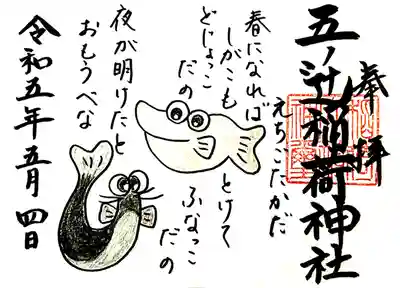 奉拝
五ノ辻稲荷神社
えちごたかだ
春になれば
しがこも
とけて
どじょっこ
だの
ふなっこ
だの
夜が明けたと
おもうべな
令和五年五月四日